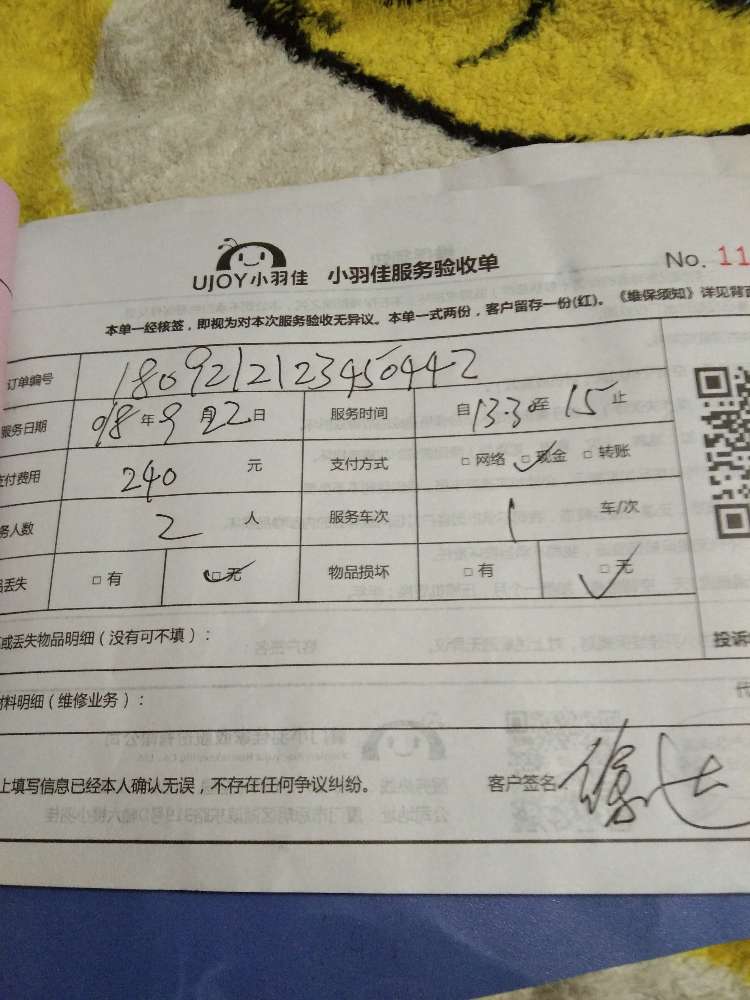 UJOY小羽佳 小羽佳服务验收单 No. 11
本单一经核签，即视为对本次服务验收无异议。本单一式两份，客户留存一份(红)。《维保须知》详见背面
订单编号 1809212123450442
服务日期 018年9月22日 服务时间 自13:30至15止
支付费用 240 元 支付方式 □网络 ✓□现金 □转账
务人数 2 人 服务车次 1 车/次
丢失 □有 ✓□无 物品损坏 □有 ✓□无
或丢失物品明细（没有可不填）： 投诉
材料明细（维修业务）：
上填写信息已经本人确认无误，不存在任何争议纠纷。 客户签名